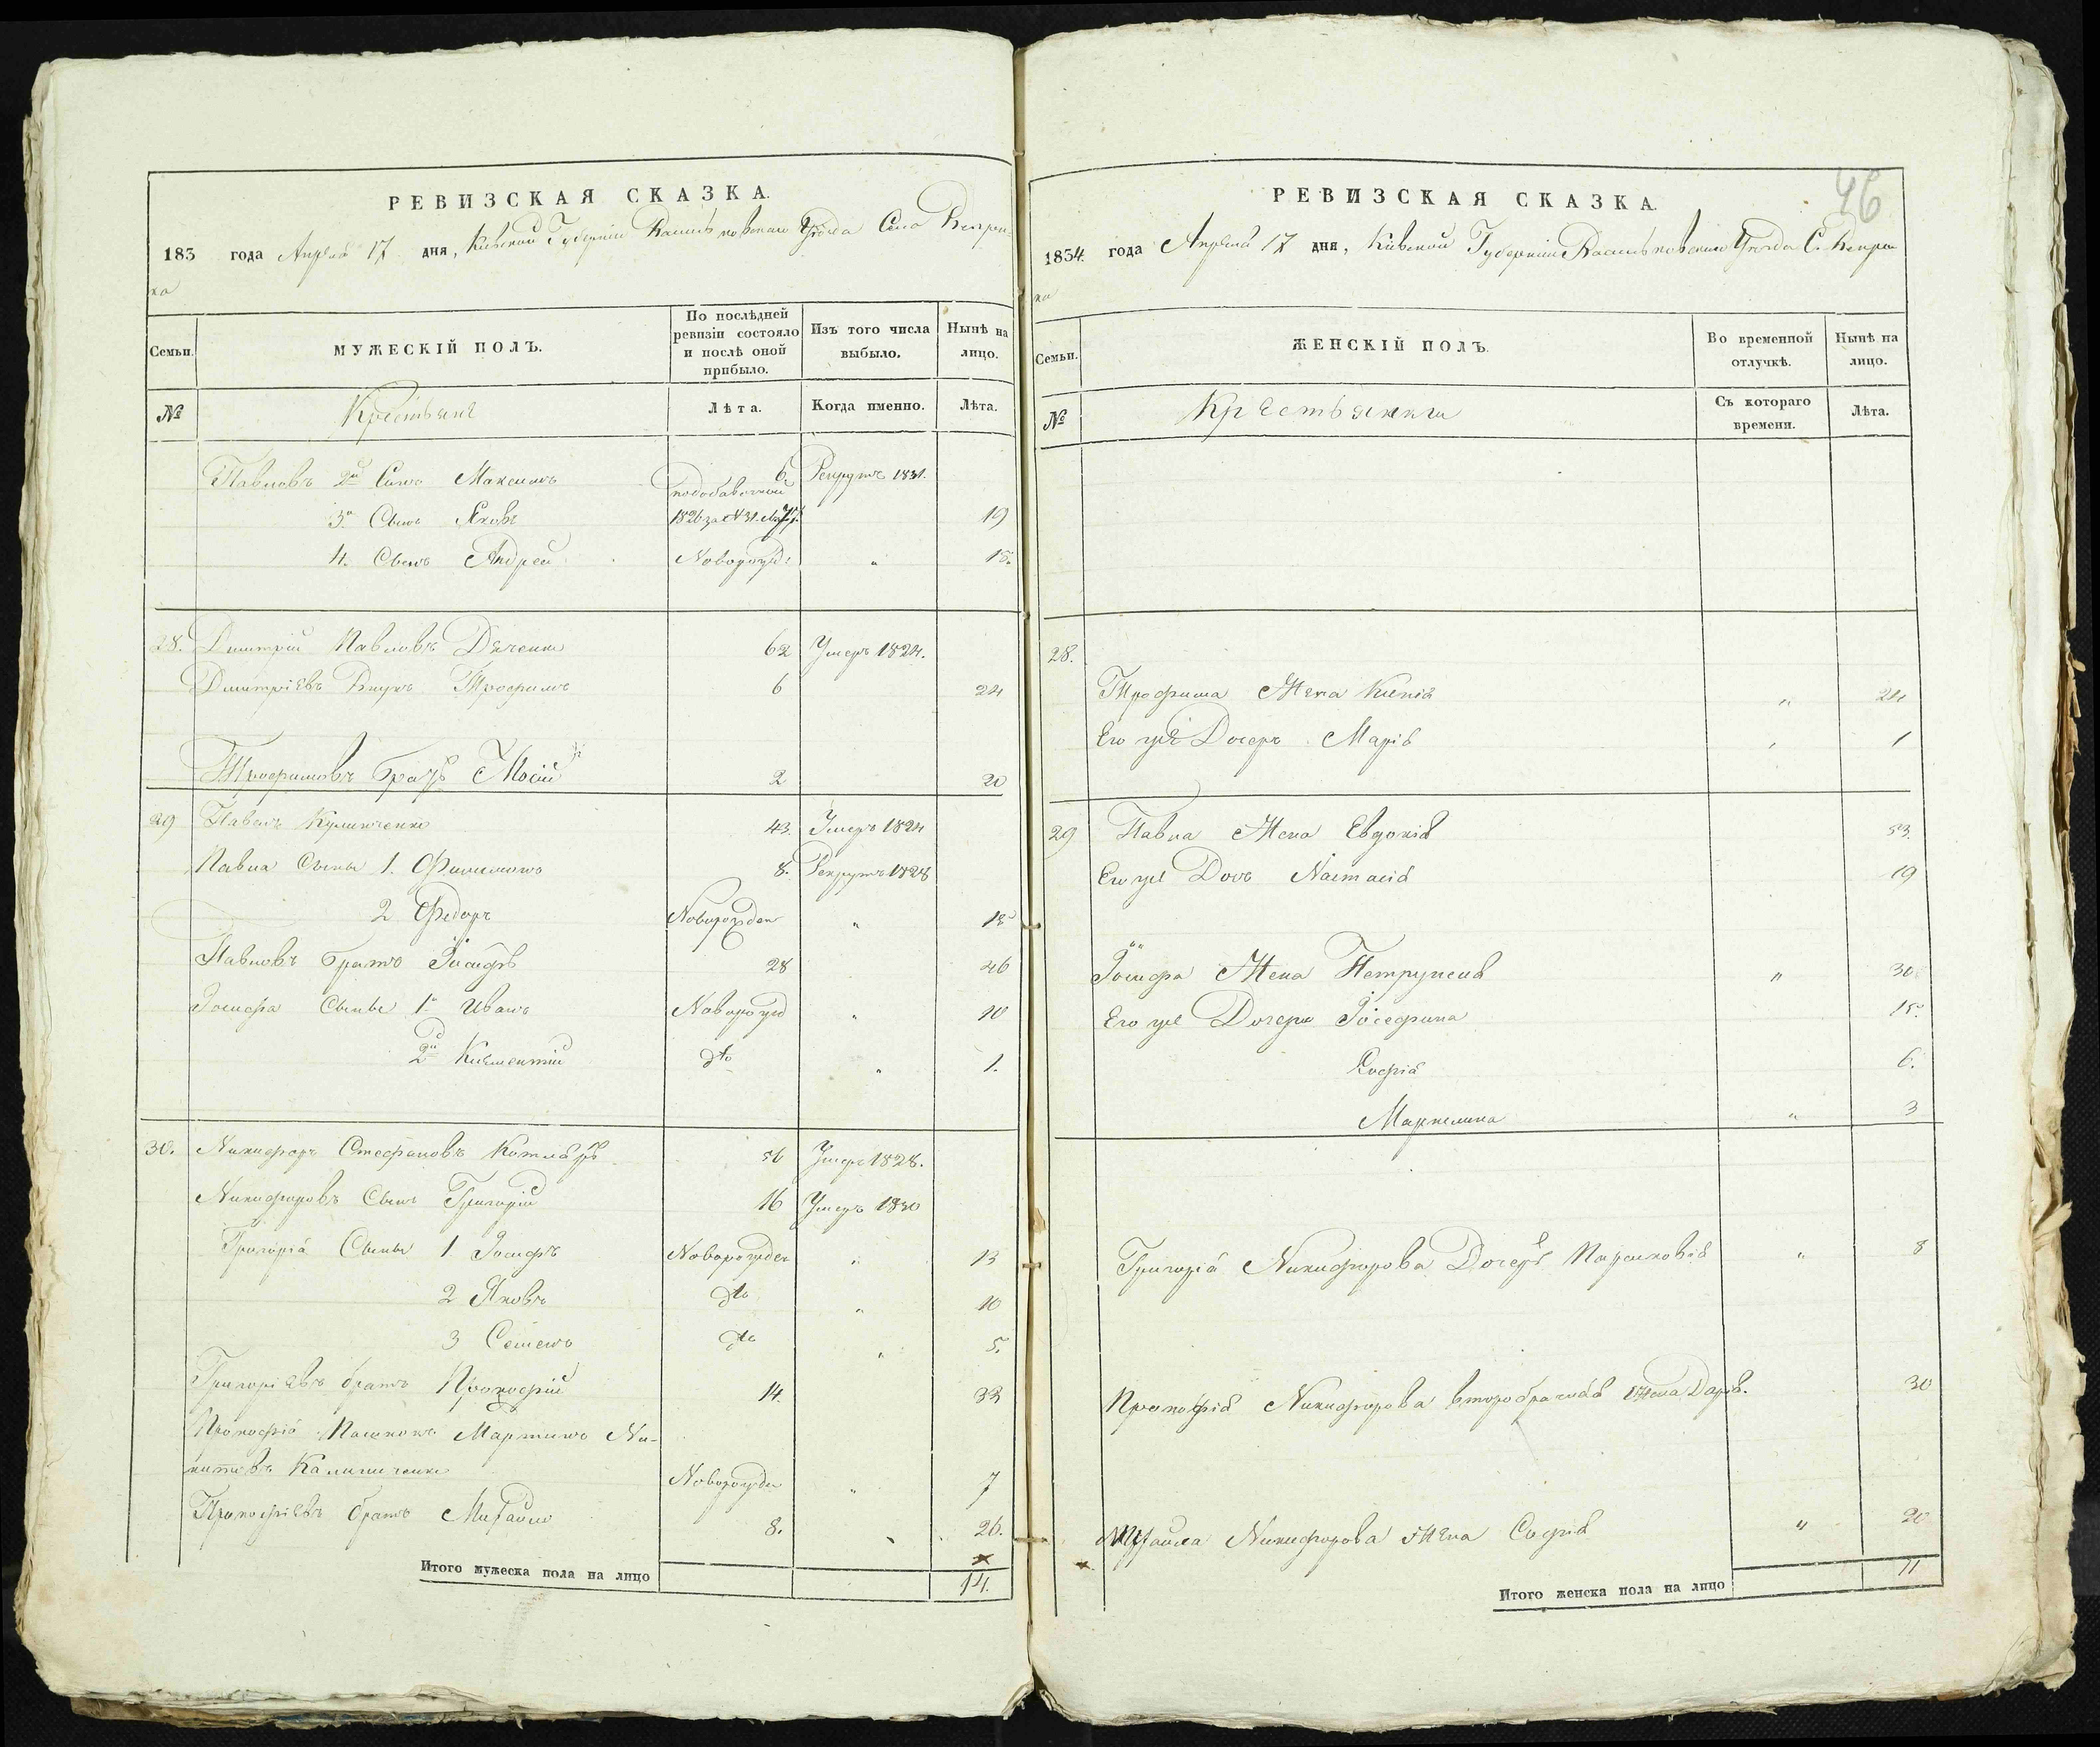 РЕВИЗСКАЯ СКАЗКА.
183 года Апреля 17 дня, Киевской Губернии Васильковского Уезда Села Вепри-
ка
Семьи.
МУЖЕСКІЙ ПОЛЪ.
По послѣдней ревизіи состояло и послѣ оной прибыло.
Изъ того числа выбыло.
Нынѣ на лицо.
№
Крестьяне
Лѣта.
Когда именно.
Лѣта.
Павловъ 2й Сынъ Максимъ 6 Рекрутъ 1831.
3й Сынъ Яковъ 1826 за №31. 19
4. Сынъ Андрей Новорожд: " 15.
28. Дмитрій Павловъ Дяченко 62 Умеръ 1824.
Дмитріевъ Внукъ Трофимъ 6 24
Трофимовъ братъ Мосій 2 20
29 Павелъ Кулинченко 43. Умеръ 1824
Павла Сыны 1. Филимонъ 8. Рекрутъ 1828
2 Федоръ Новорожден " 12
Павловъ братъ Іосифъ 28 46
Іосифа Сыны 1й Иванъ Новорожд " 10
2й Климентій dto " 1.
30. Никифоръ Стефановъ Котляръ 56 Умеръ 1828.
Никифоровъ Сынъ Григорій 16 Умеръ 1830
Григорія Сыны 1. Іосифъ Новорожден " 13
2 Яковъ dto " 10
3 Семенъ dto " 5.
Григоріевъ братъ Прокофій 14. 33
Прокофія Пасынокъ Мартинъ Ни-
китевъ Новорожден " 7
Прокофіевъ братъ Михайло 8. 26.
Итого мужеска пола на лицо 14.
46
РЕВИЗСКАЯ СКАЗКА.
1834. года Апреля 17 дня, Киевской Губернии Васильковского Уезда С. Вепри
ка
Семьи.
ЖЕНСКІЙ ПОЛЪ.
Во временной отлучкѣ.
Нынѣ на лицо.
№
Крестьянки
Съ котораго времени.
Лѣта.
28.
Трофима Жена Ксенія " 24
Его же Дочерь Марія " 1
29 Павла Жена Евдокія 53.
Его же Дочь Настасія " 19
Іосифа Жена Петрунеля " 30
Его же Дочери Іосефина 15.
Софія 6.
Маркелина " 3
Григорія Никифорова Дочерь Парасковія " 8
Прокофія Никифорова второбрачная Жена Дарія. 30
Михайла Никифорова Жена Софія " 20
Итого женска пола на лицо 11